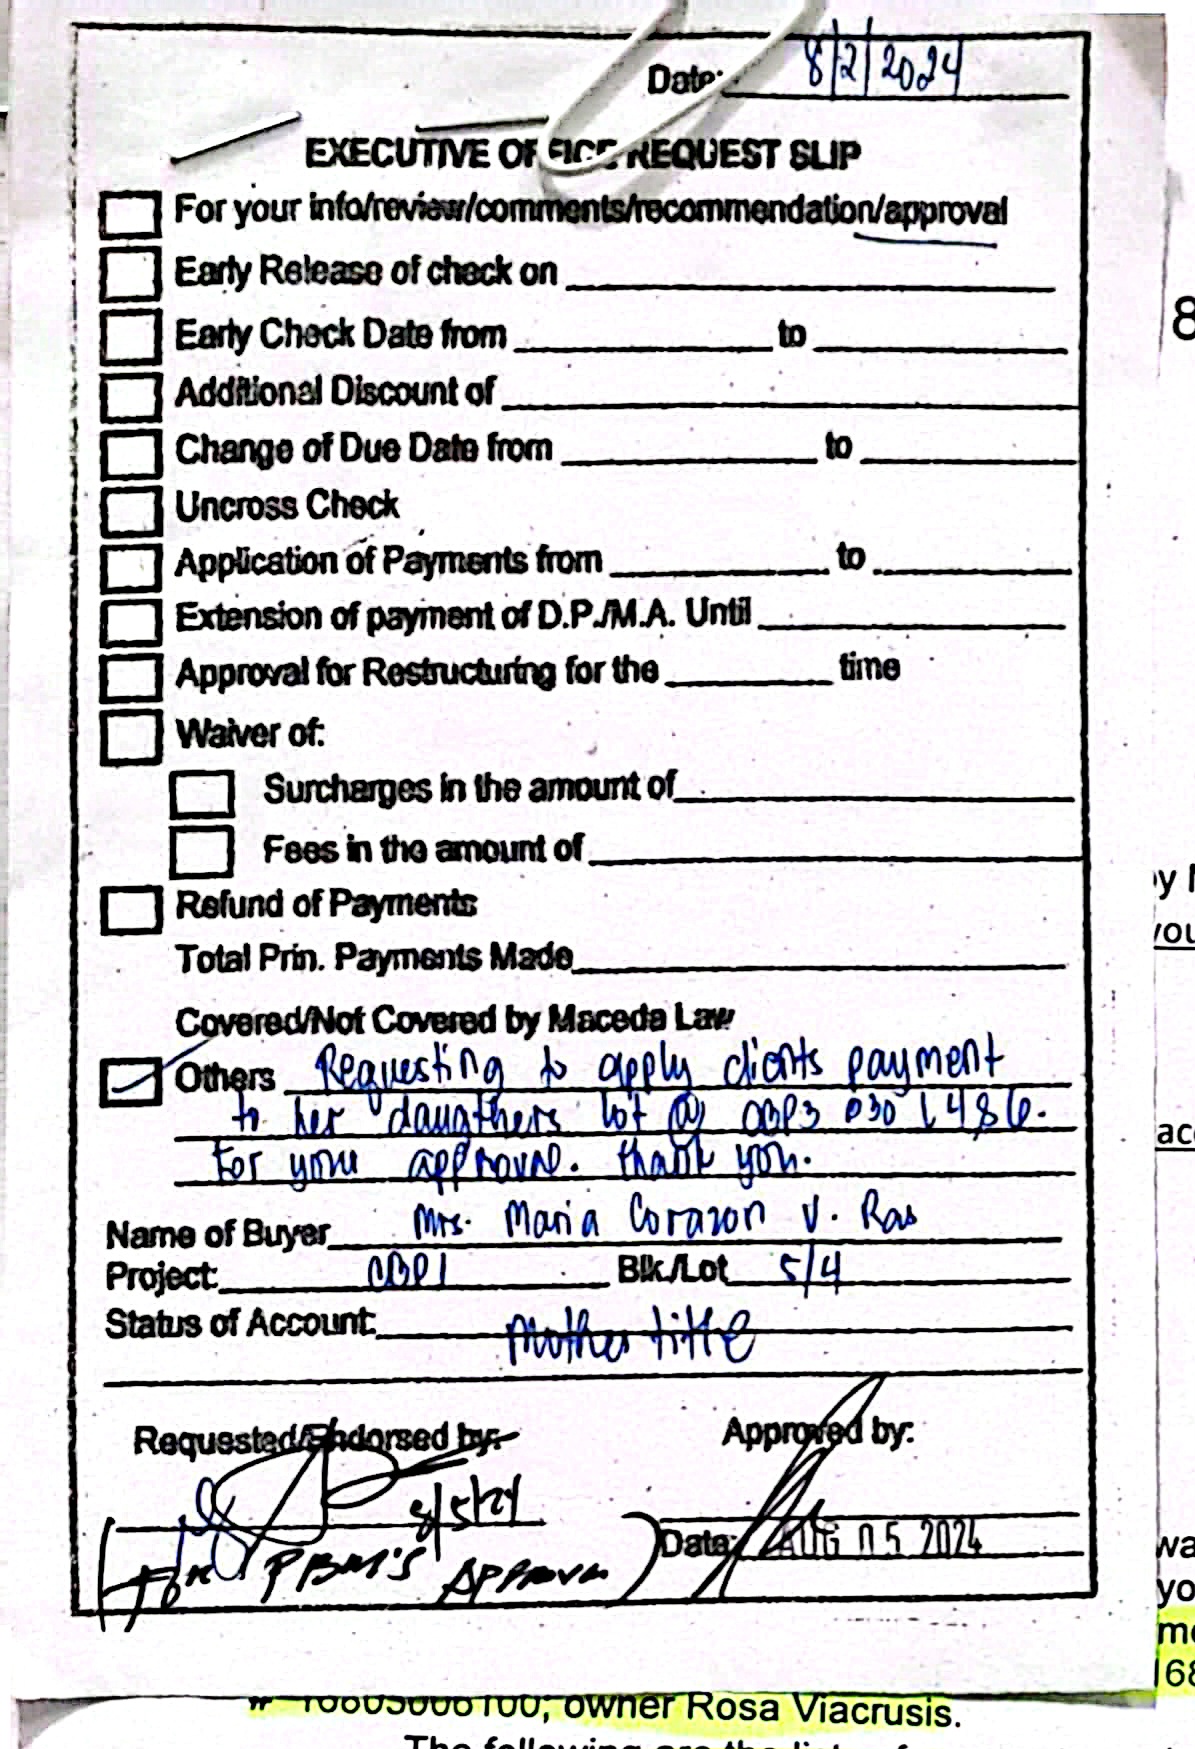 Date: 8/2/2024
EXECUTIVE OFFICE REQUEST SLIP
For your info/review/comments/recommendation/approval
Early Release of check on
Early Check Date from to
Additional Discount of
Change of Due Date from to
Uncross Check
Application of Payments from to
Extension of payment of D.P./M.A. Until
Approval for Restructuring for the time
Waiver of:
Surcharges in the amount of
Fees in the amount of
Refund of Payments
Total Prin. Payments Made
Covered/Not Covered by Maceda Law
Others Requesting to apply clients payment
to her daugthers lot @
For your approval. thank you.
Name of Buyer Mrs. Maria Corazon V. Ras
Project: Blk./Lot 5/4
Status of Account: Mother title
Requested/Endorsed by: Approved by:
8/5/24
Date: AUG 05 2024
(For PBM'S Approval)
owner Rosa Viacrusis.
The following are the